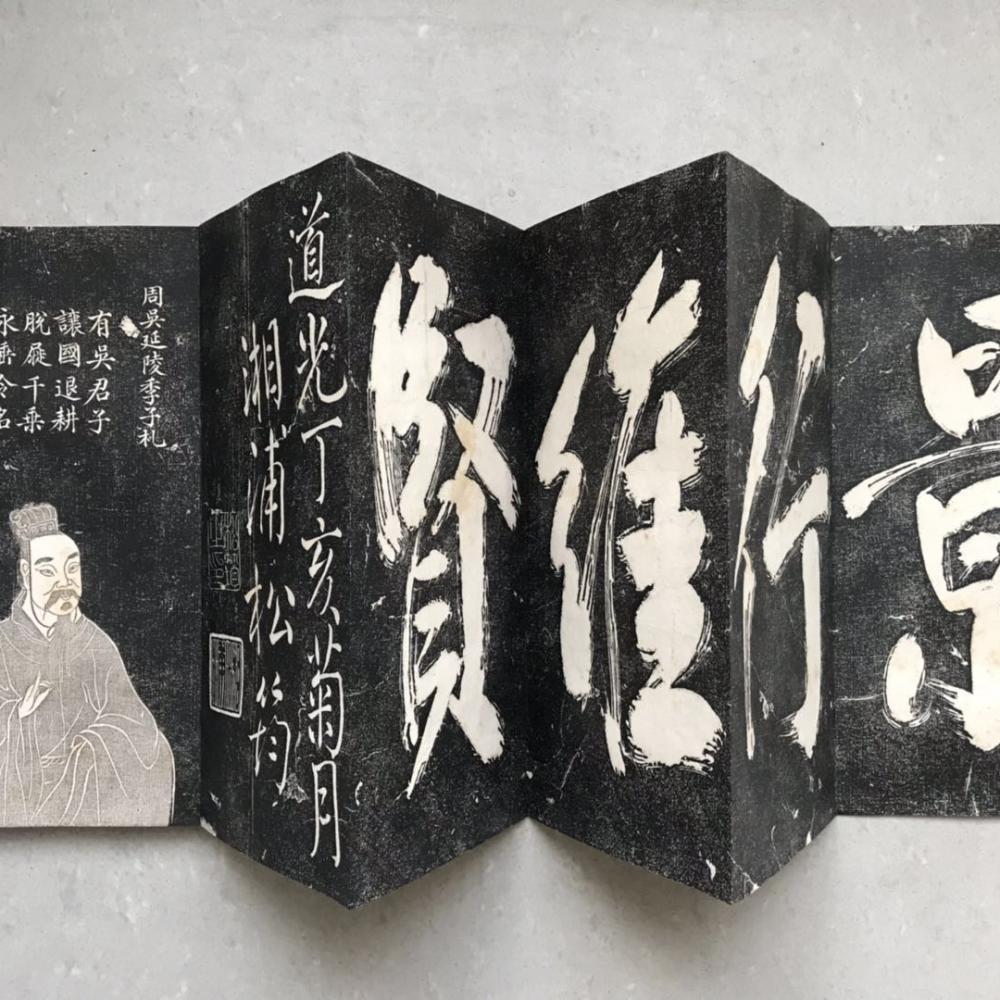 景
行
維
賢
道光丁亥菊月
湘浦松筠
周吳延陵季子札
有吳君子
讓國退耕
脫屣千乘
永垂令名